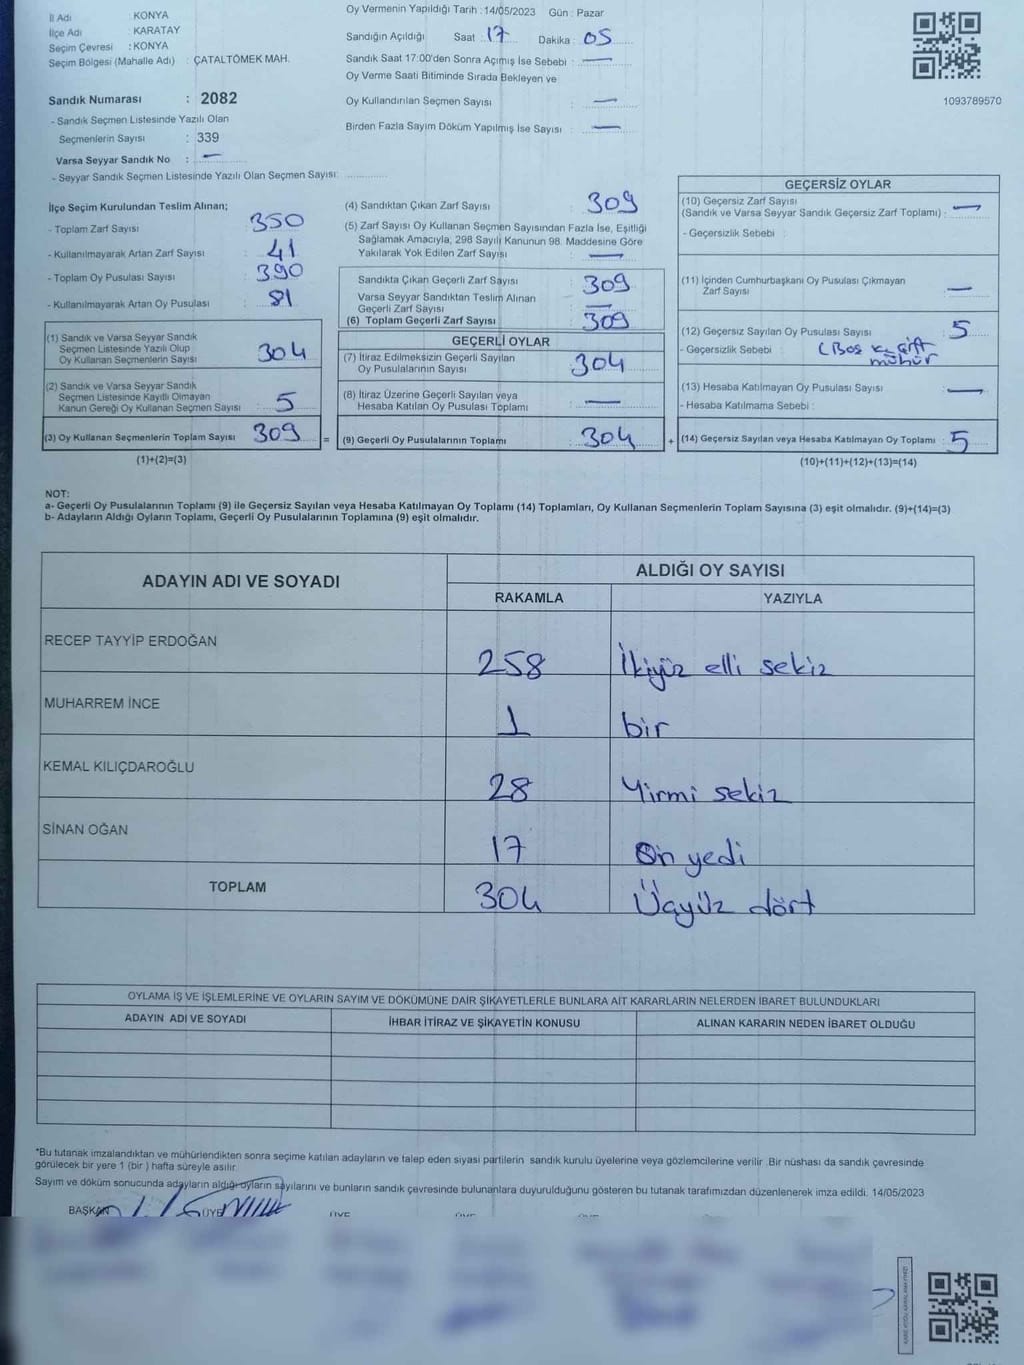 İl Adı : KONYA
İlçe Adı : KARATAY
Seçim Çevresi : KONYA
Seçim Bölgesi (Mahalle Adı) : ÇATALTÖMEK MAH.
Sandık Numarası : 2082
- Sandık Seçmen Listesinde Yazılı Olan
Seçmenlerin Sayısı : 339
Varsa Seyyar Sandık No : —
- Seyyar Sandık Seçmen Listesinde Yazılı Olan Seçmen Sayısı:
Oy Vermenin Yapıldığı Tarih : 14/05/2023 Gün : Pazar
Sandığın Açıldığı Saat : 17 Dakika : 05
Sandık Saat 17:00'den Sonra Açımış İse Sebebi : —
Oy Verme Saati Bitiminde Sırada Bekleyen ve
Oy Kullandırılan Seçmen Sayısı : —
Birden Fazla Sayım Döküm Yapılmış İse Sayısı : —
1093789570
İlçe Seçim Kurulundan Teslim Alınan;
- Toplam Zarf Sayısı : 350
- Kullanılmayarak Artan Zarf Sayısı : 41
- Toplam Oy Pusulası Sayısı : 390
- Kullanılmayarak Artan Oy Pusulası : 81
(1) Sandık ve Varsa Seyyar Sandık
Seçmen Listesinde Yazılı Olup
Oy Kullanan Seçmenlerin Sayısı : 304
(2) Sandık ve Varsa Seyyar Sandık
Seçmen Listesinde Kayıtlı Olmayan
Kanun Gereği Oy Kullanan Seçmen Sayısı : 5
(3) Oy Kullanan Seçmenlerin Toplam Sayısı : 309
(1)+(2)=(3)
(4) Sandıktan Çıkan Zarf Sayısı : 309
(5) Zarf Sayısı Oy Kullanan Seçmen Sayısından Fazla İse, Eşitliği
Sağlamak Amacıyla, 298 Sayılı Kanunun 98. Maddesine Göre
Yakılarak Yok Edilen Zarf Sayısı : —
Sandıkta Çıkan Geçerli Zarf Sayısı : 309
Varsa Seyyar Sandıktan Teslim Alınan
Geçerli Zarf Sayısı : —
(6) Toplam Geçerli Zarf Sayısı : 309
GEÇERLİ OYLAR
(7) İtiraz Edilmeksizin Geçerli Sayılan
Oy Pusulalarının Sayısı : 304
(8) İtiraz Üzerine Geçerli Sayılan veya
Hesaba Katılan Oy Pusulası Toplamı : —
= (9) Geçerli Oy Pusulalarının Toplamı : 304
GEÇERSİZ OYLAR
(10) Geçersiz Zarf Sayısı
(Sandık ve Varsa Seyyar Sandık Geçersiz Zarf Toplamı) : —
- Geçersizlik Sebebi :
(11) İçinden Cumhurbaşkanı Oy Pusulası Çıkmayan
Zarf Sayısı : —
(12) Geçersiz Sayılan Oy Pusulası Sayısı : 5
- Geçersizlik Sebebi : (Boş çift
mühür
(13) Hesaba Katılmayan Oy Pusulası Sayısı : —
- Hesaba Katılmama Sebebi :
+ (14) Geçersiz Sayılan veya Hesaba Katılmayan Oy Toplamı : 5
(10)+(11)+(12)+(13)=(14)
NOT:
a- Geçerli Oy Pusulalarının Toplamı (9) ile Geçersiz Sayılan veya Hesaba Katılmayan Oy Toplamı (14) Toplamları, Oy Kullanan Seçmenlerin Toplam Sayısına (3) eşit olmalıdır. (9)+(14)=(3)
b- Adayların Aldığı Oyların Toplamı, Geçerli Oy Pusulalarının Toplamına (9) eşit olmalıdır.
ADAYIN ADI VE SOYADI ALDIĞI OY SAYISI
RAKAMLA YAZIYLA
RECEP TAYYİP ERDOĞAN 258 İkiyüz elli sekiz
MUHARREM İNCE 1 bir
KEMAL KILIÇDAROĞLU 28 Yirmi sekiz
SİNAN OĞAN 17 On yedi
TOPLAM 304 Üçyüz dört
OYLAMA İŞ VE İŞLEMLERİNE VE OYLARIN SAYIM VE DÖKÜMÜNE DAİR ŞİKAYETLERLE BUNLARA AİT KARARLARIN NELERDEN İBARET BULUNDUKLARI
ADAYIN ADI VE SOYADI İHBAR İTİRAZ VE ŞİKAYETİN KONUSU ALINAN KARARIN NEDEN İBARET OLDUĞU
*Bu tutanak imzalandıktan ve mühürlendikten sonra seçime katılan adayların ve talep eden siyasi partilerin sandık kurulu üyelerine veya gözlemcilerine verilir. Bir nüshası da sandık çevresinde
görülecek bir yere 1 (bir ) hafta süreyle asılır.
Sayım ve döküm sonucunda adayların aldığı oyların sayılarını ve bunların sandık çevresinde bulunanlara duyurulduğunu gösteren bu tutanak tarafımızdan düzenlenerek imza edildi. 14/05/2023
BAŞKAN ÜYE ÜYE